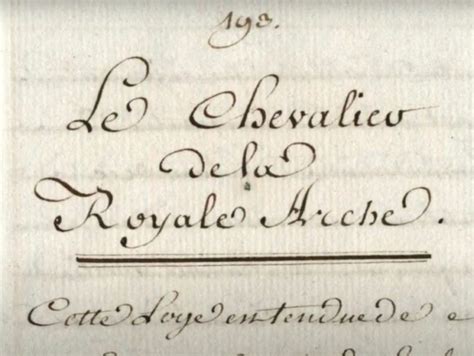 193.
Le Chevalier
de la
Royale Arche.
Cette Loge entendue de